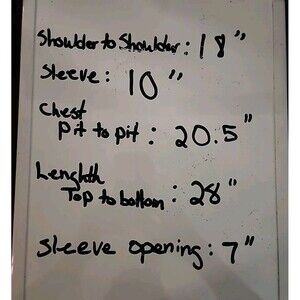 Shoulder to Shoulder: 18"
Sleeve: 10"
Chest
Pit to pit: 20.5"
Lenghth
Top to bottom: 28"
Sleeve opening: 7"